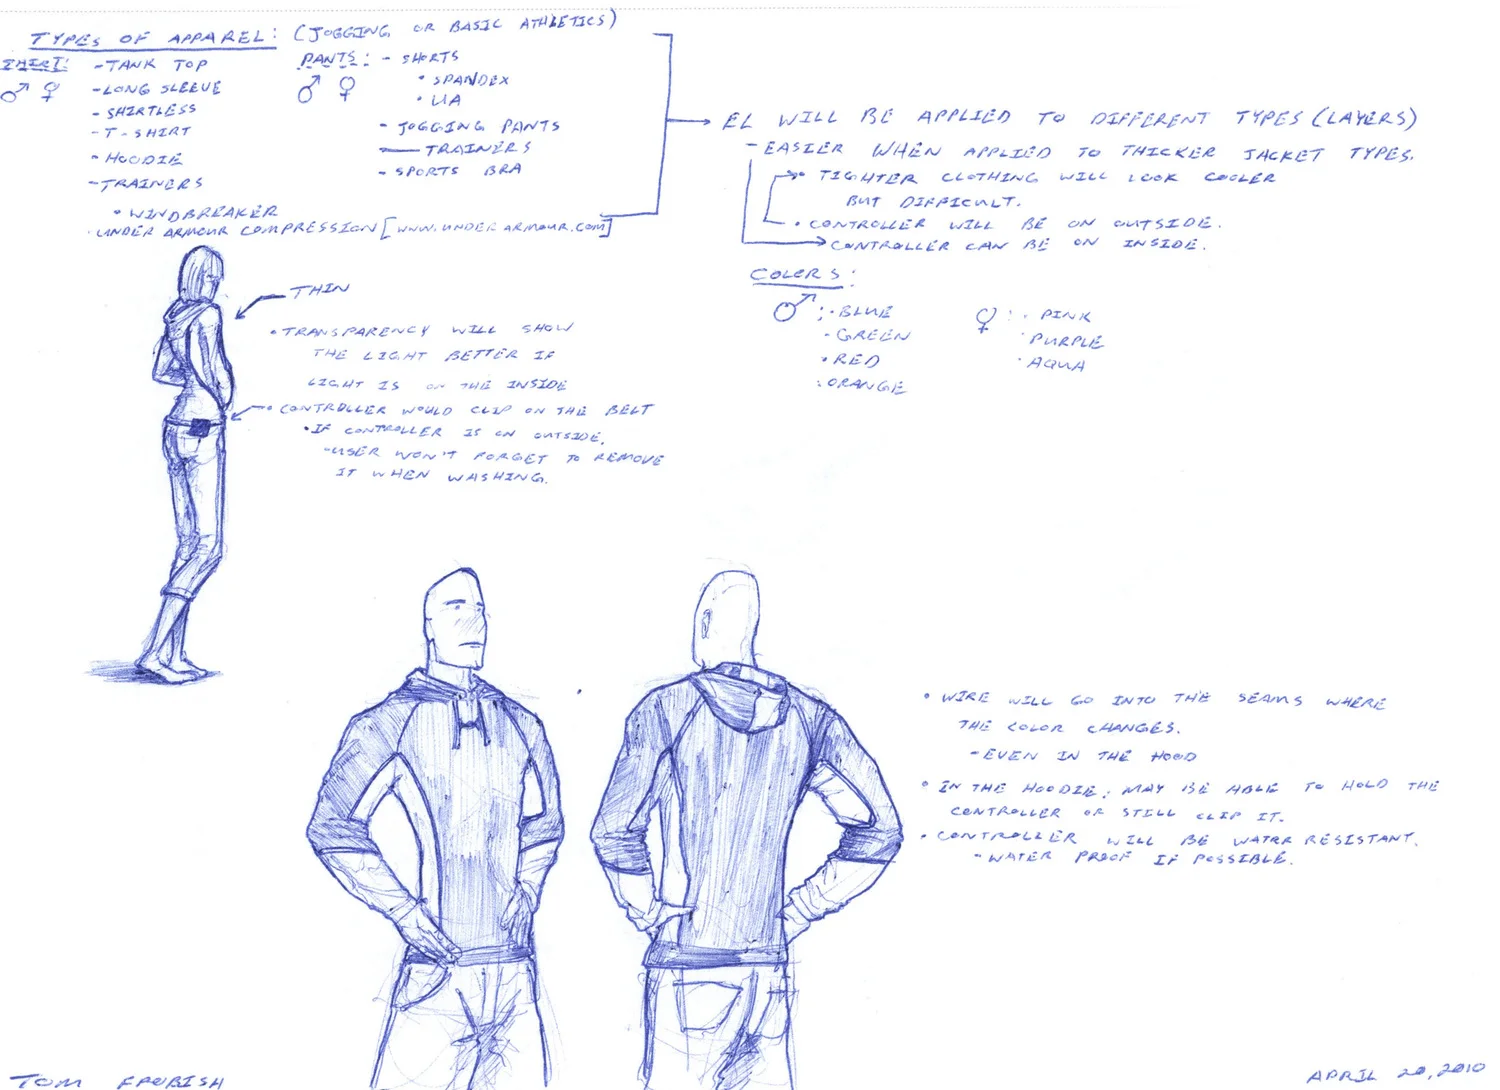 TYPES OF APPAREL: (JOGGING OR BASIC ATHLETICS)
SHIRT:
♂ ♀
- TANK TOP
- LONG SLEEVE
- SHIRTLESS
- T-SHIRT
• HOODIE
- TRAINERS
• WINDBREAKER
• UNDER ARMOUR COMPRESSION [WWW.UNDERARMOUR.COM]
PANTS: - SHORTS
♂ ♀
• SPANDEX
• UA
- JOGGING PANTS
- TRAINERS
- SPORTS BRA
EL WILL BE APPLIED TO DIFFERENT TYPES (LAYERS)
- EASIER WHEN APPLIED TO THICKER JACKET TYPES.
• TIGHTER CLOTHING WILL LOOK COOLER
BUT DIFFICULT.
• CONTROLLER WILL BE ON OUTSIDE.
CONTROLLER CAN BE ON INSIDE.
COLORS:
♂: • BLUE
- GREEN
• RED
• ORANGE
♀: • PINK
• PURPLE
• AQUA
THIN
• TRANSPARENCY WILL SHOW
THE LIGHT BETTER IF
LIGHT IS ON THE INSIDE
• CONTROLLER WOULD CLIP ON THE BELT
• IF CONTROLLER IS ON OUTSIDE,
- USER WON'T FORGET TO REMOVE
IT WHEN WASHING.
• WIRE WILL GO INTO THE SEAMS WHERE
THE COLOR CHANGES.
- EVEN IN THE HOOD
• IN THE HOODIE; MAY BE ABLE TO HOLD THE
CONTROLLER OR STILL CLIP IT.
• CONTROLLER WILL BE WATER RESISTANT.
- WATER PROOF IF POSSIBLE.
TOM FROBISH
APRIL 20, 2010